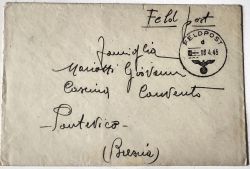 Feldpost
FELDPOST
d
10.4.45
Famiglia
Mariotti Giovanni
Cascina Convento
Pontevico
(Brescia)